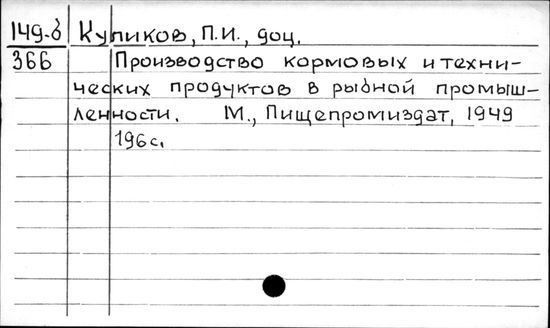 149-б Куликов, П.И., доц.
366 Производство кормовых и техни-
ческих продуктов в рыбной промыш-
ленности. М., Пищепромиздат, 1949
196 с.